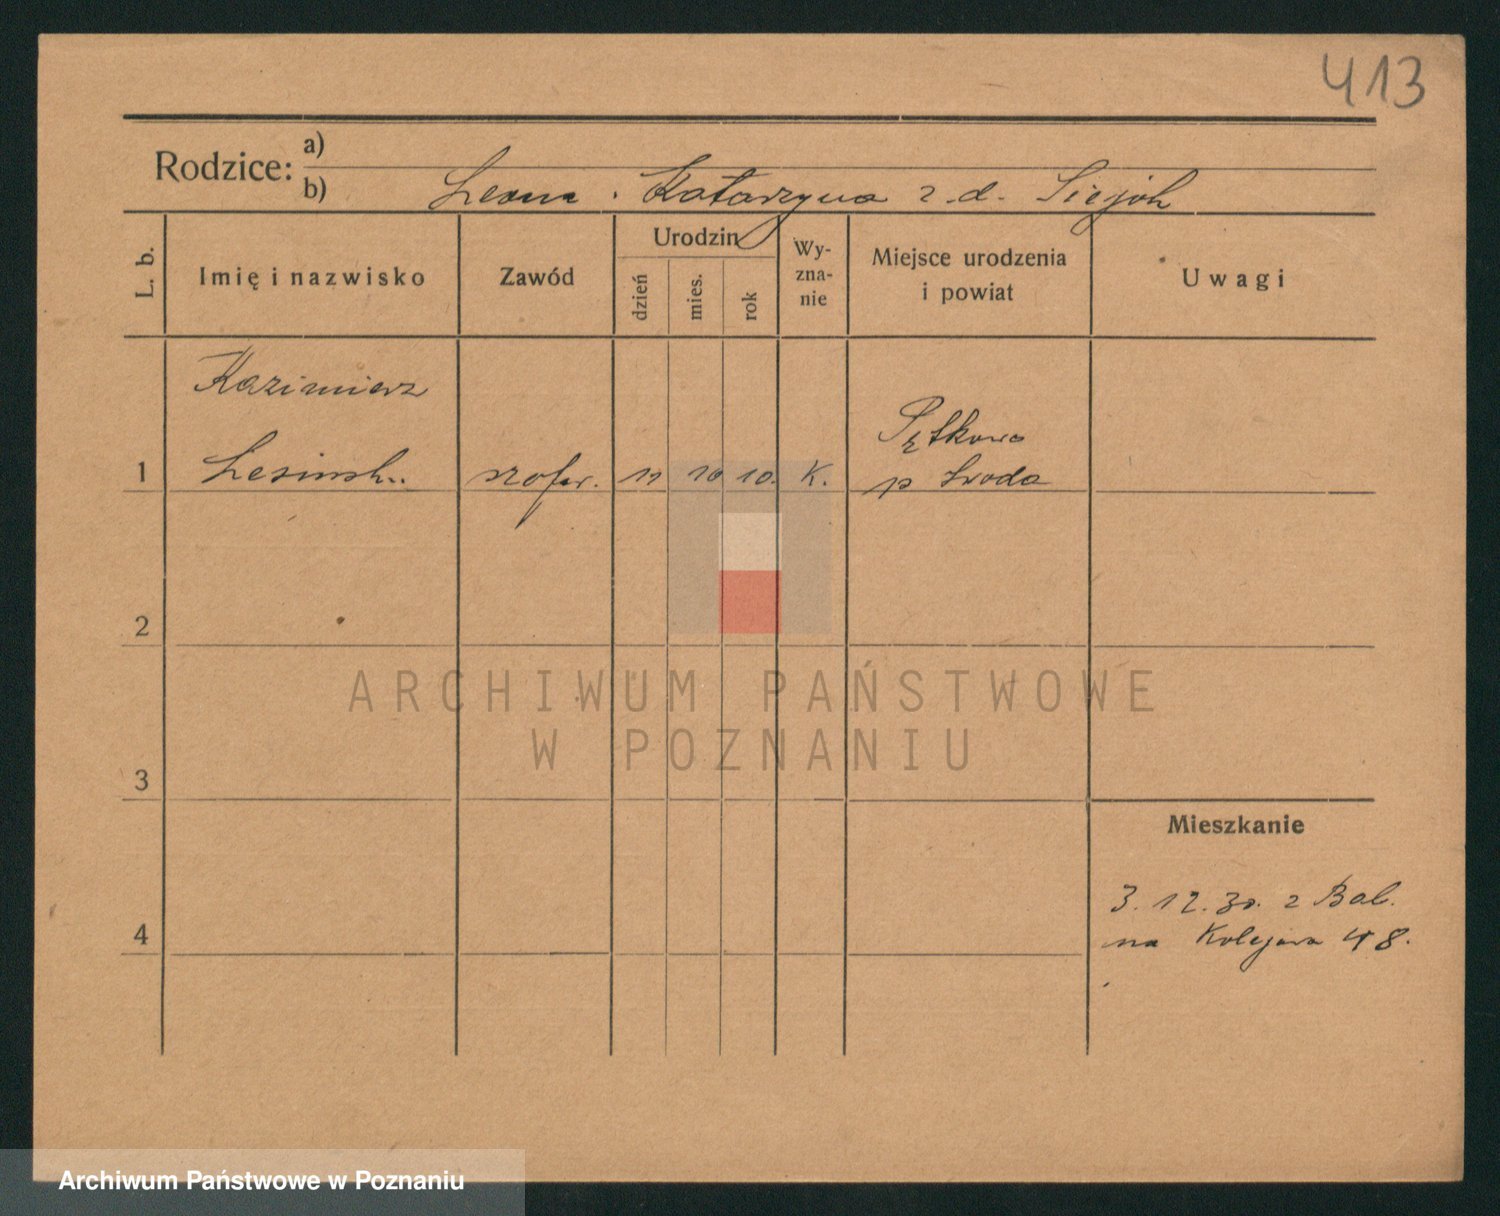 413
Rodzice:
a)
b) Leona . Katarzyna z d.
L. b.
Imię i nazwisko
Zawód
Urodzin
dzień
mies.
rok
Wy-
zna-
nie
Miejsce urodzenia
i powiat
Uwagi
Kazimierz
1
Lesinski
szofer.
11
10
10.
K.
Pętkowo
p Środa
2
3
4
Mieszkanie
3. 12. 30. z Bab.
na Kolejowa 48.
ARCHIWUM PAŃSTWOWE
W POZNANIU
Archiwum Państwowe w Poznaniu